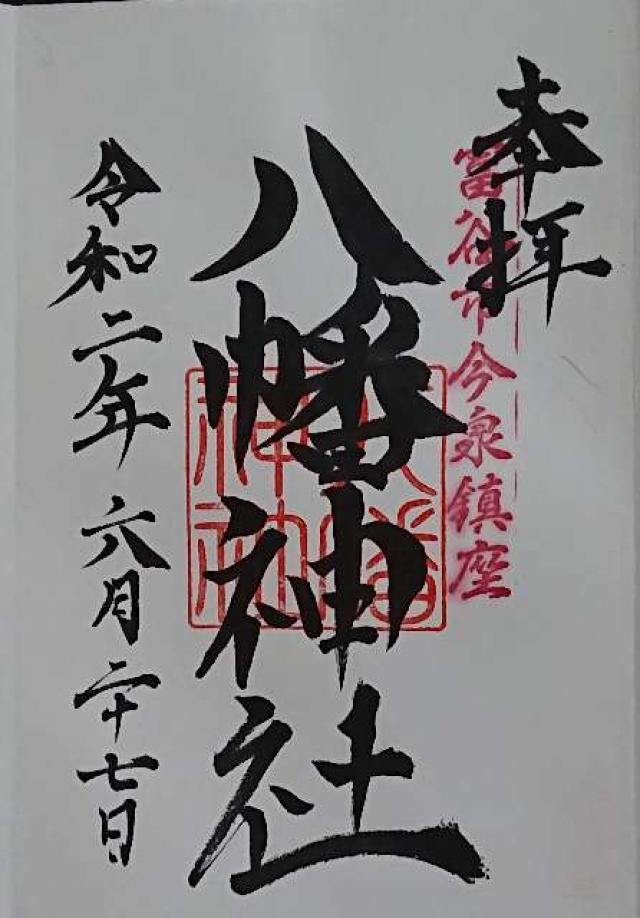 奉拝
富谷市今泉鎮座
八幡神社
八幡
神社
令和二年六月二十七日